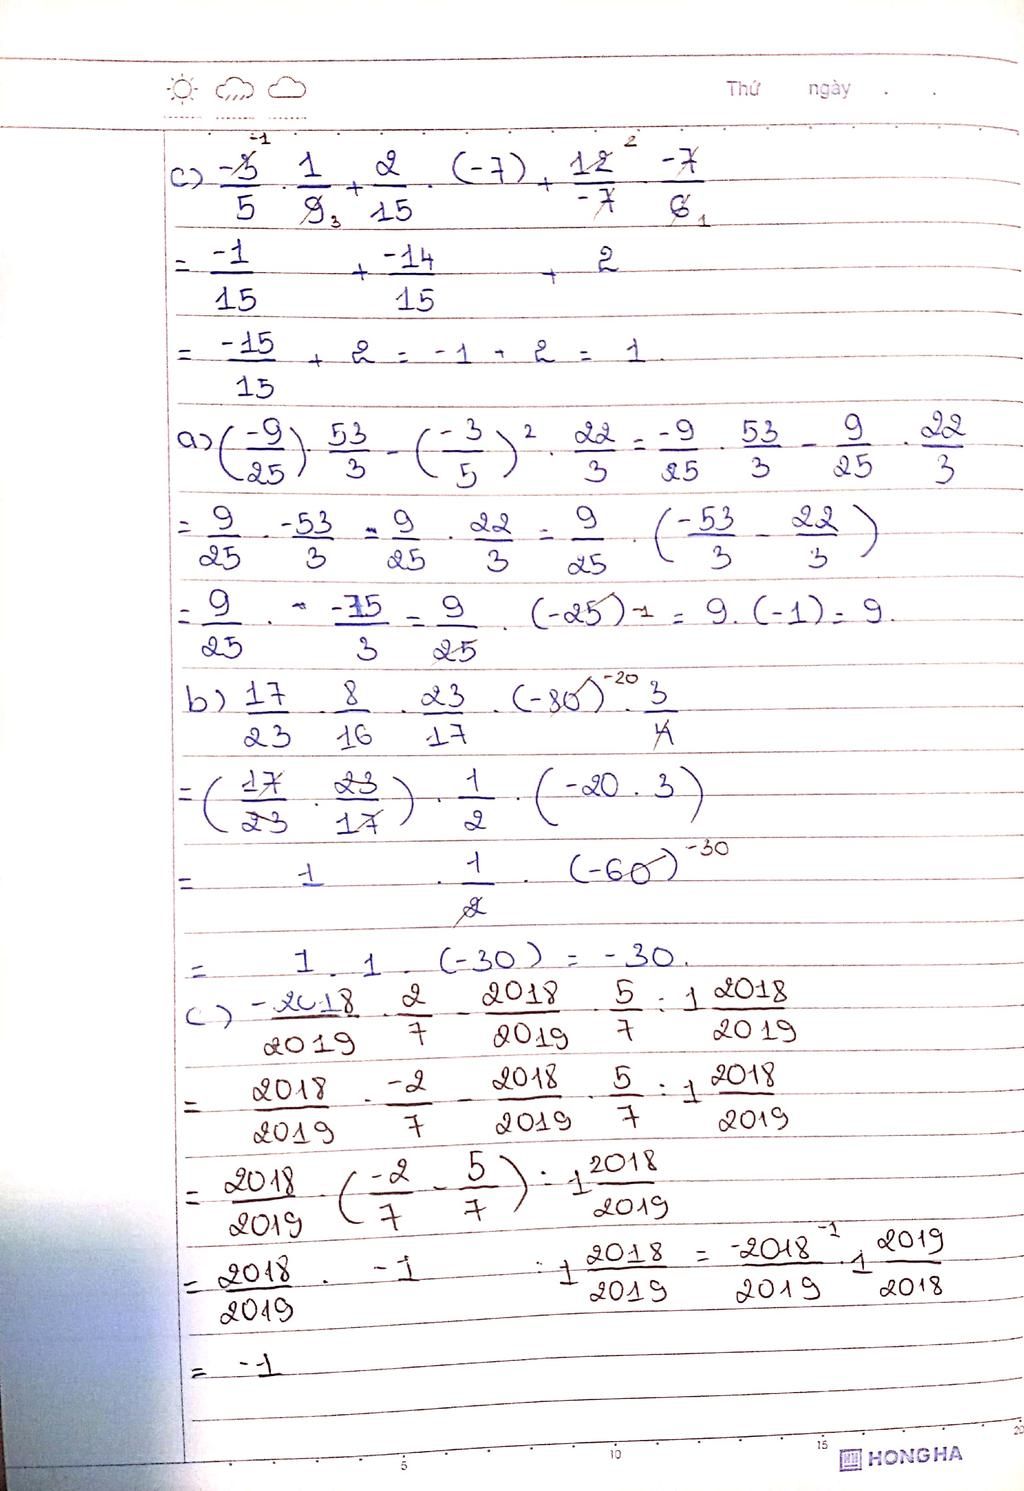 Thứ ngày . .
c) -3/5 ^-1 . 1/9 3 + 2/15 . (-7) + 12/-7 ^2 . -7/6 1
= -1/15 + -14/15 + 2
= -15/15 + 2 = -1 + 2 = 1.
a) (-9/25) . 53/3 - (-3/5)² . 22/3 = -9/25 . 53/3 - 9/25 . 22/3
= 9/25 . -53/3 - 9/25 . 22/3 = 9/25 . (-53/3 - 22/3)
= 9/25 . -75/3 = 9/25 . (-25) -1 = 9. (-1) = 9.
b) 17/23 . 8/16 . 23/17 . (-80) ^-20 . 3/4
= (17/23 . 23/17) . 1/2 . (-20 . 3)
= 1 . 1/2 . (-60) ^-30
= 1 . 1 . (-30) = -30.
c) -2018/2019 . 2/7 - 2018/2019 . 5/7 : 1 2018/2019
= 2018/2019 . -2/7 - 2018/2019 . 5/7 : 1 2018/2019
= 2018/2019 . (-2/7 - 5/7) : 1 2018/2019
= 2018/2019 . -1 : 1 2018/2019 = -2018/2019 ^-1 . 1 2019/2018
= -1
5 10 15 20
HONG HA